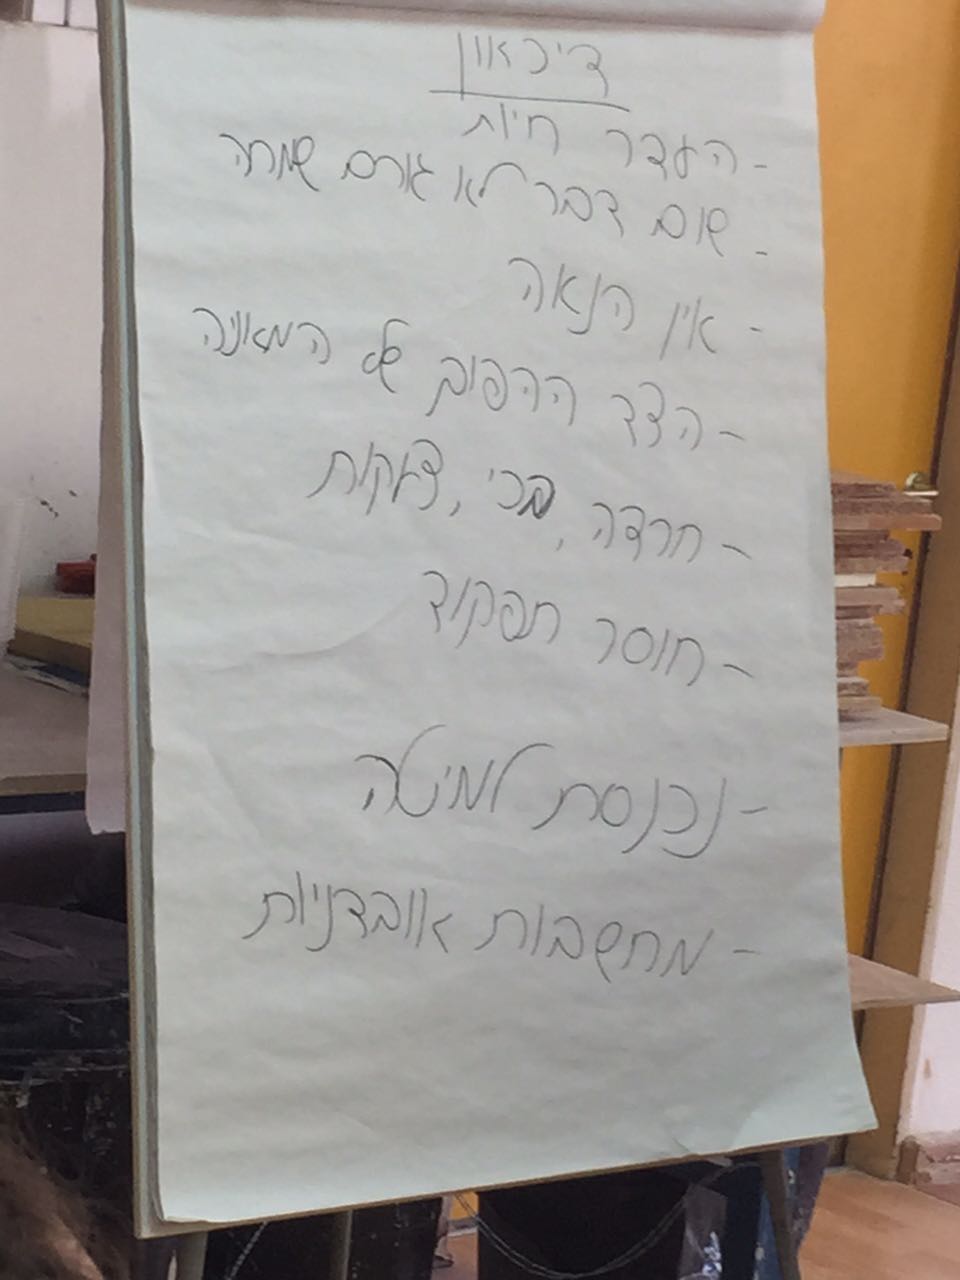 דיכאון
- העדר חיות
- שום דבר לא גורם שמחה
- אין הנאה
- הצד ההפוך של המאניה
- חרדה, בכי, צעקות
- חוסר תפקוד
- נכנסת למיטה
- מחשבות אובדניות